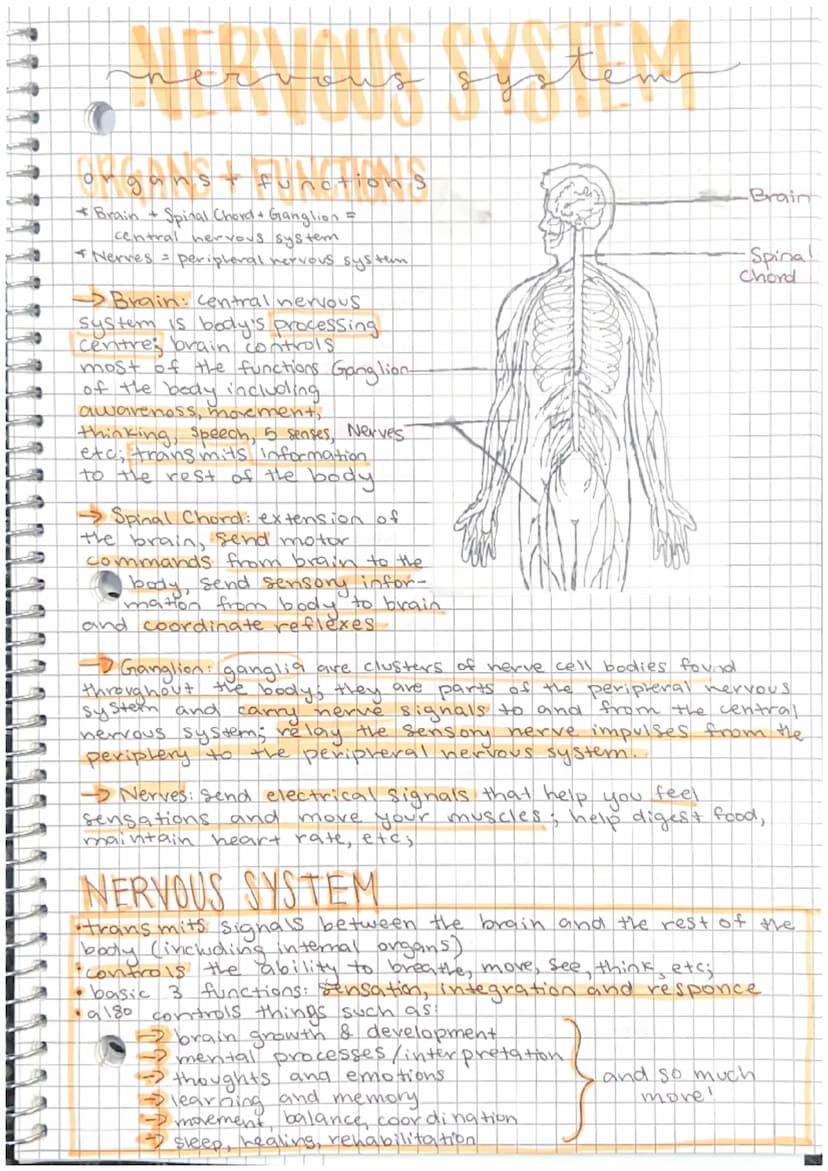 NERVOUS SYSTEM
nervous system
ORGANS + FUNCTIONS
organs + functions
* Brain + Spinal Chord + Ganglion =
central nervous system
* Nerves = peripheral nervous system
Brain
Spinal
Chord
→ Brain: central nervous
system is body's processing
centre; brain controls
most of the functions
Ganglion
of the body including
awareness, movement,
thinking, speech, 5 senses,
Nerves
etc; transmits information
to the rest of the body
→ Spinal Chord: extension of
the brain, send motor
commands from brain to the
body, send sensory infor-
mation from body to brain
and coordinate reflexes
→ Ganglion: ganglia are clusters of nerve cell bodies found
throughout the body; they are parts of the peripheral nervous
system and carry nerve signals to and from the central
nervous system; relay the sensory nerve impulses from the
periphery to the peripheral nervous system.
→ Nerves: send electrical signals that help you feel
sensations and move your muscles; help digest food,
maintain heart rate, etc;
NERVOUS SYSTEM
• transmits signals between the brain and the rest of the
body (including internal organs)
• controls the ability to breathe, move, see, think, etc;
• basic 3 functions: sensation, integration and responce
• also controls things such as:
→ brain growth & development
→ mental processes/interpretation
→ thoughts and emotions
→ learning and memory
→ movement, balance, coordination
→ sleep, healing, rehabilitation
and so much
more!